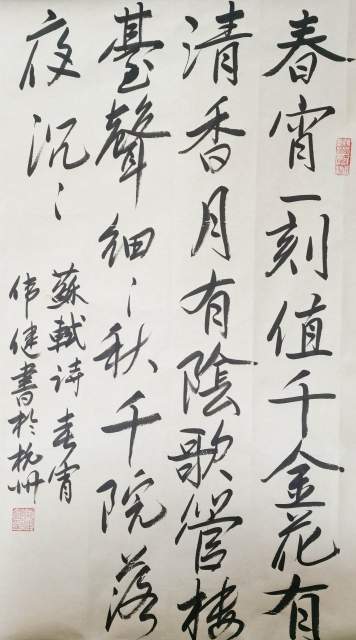 春宵一刻值千金花有
清香月有陰歌管楼
臺聲細〻秋千院落
夜沉〻
蘇軾诗春宵
伟健書於杭州